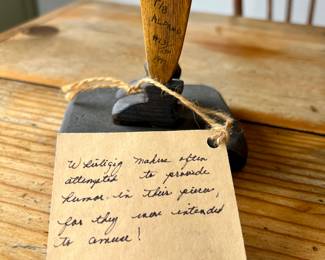 Whiligig makers often
attempted to provide
humor in their pieces,
for they were intended
to amuse!